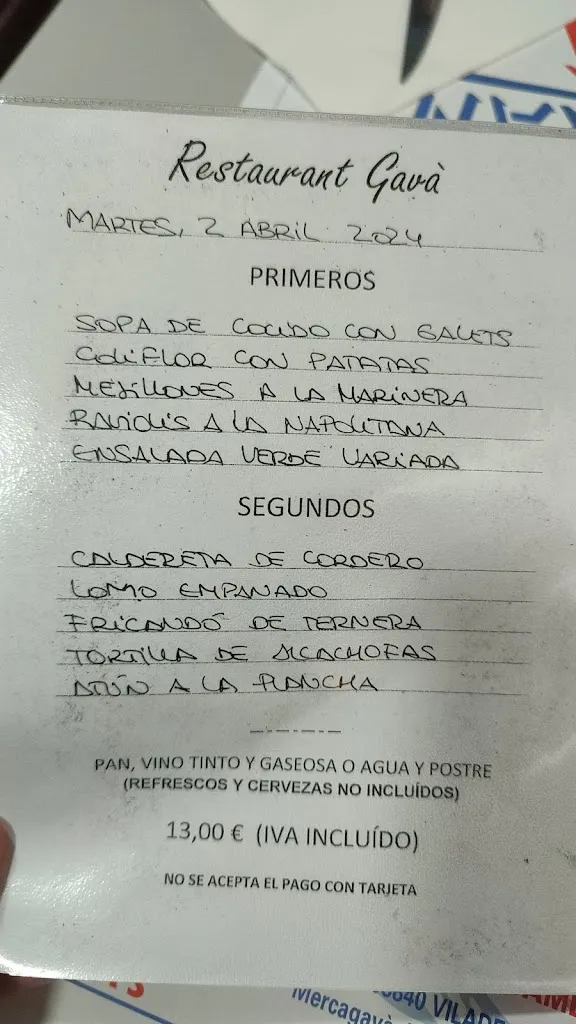 Restaurant Gavà
MARTES, 2 ABRIL 2024
PRIMEROS
SOPA DE COCIDO CON GALETS
COLIFLOR CON PATATAS
MEJILLONES A LA MARINERA
RAVIOLIS A LA NAPOLITANA
ENSALADA VERDE VARIADA
SEGUNDOS
CALDERETA DE CORDERO
LOMO EMPANADO
FRICANDÓ DE TERNERA
TORTILLA DE ALCACHOFAS
ATÚN A LA PLANCHA
PAN, VINO TINTO Y GASEOSA O AGUA Y POSTRE
(REFRESCOS Y CERVEZAS NO INCLUÍDOS)
13,00 € (IVA INCLUÍDO)
NO SE ACEPTA EL PAGO CON TARJETA